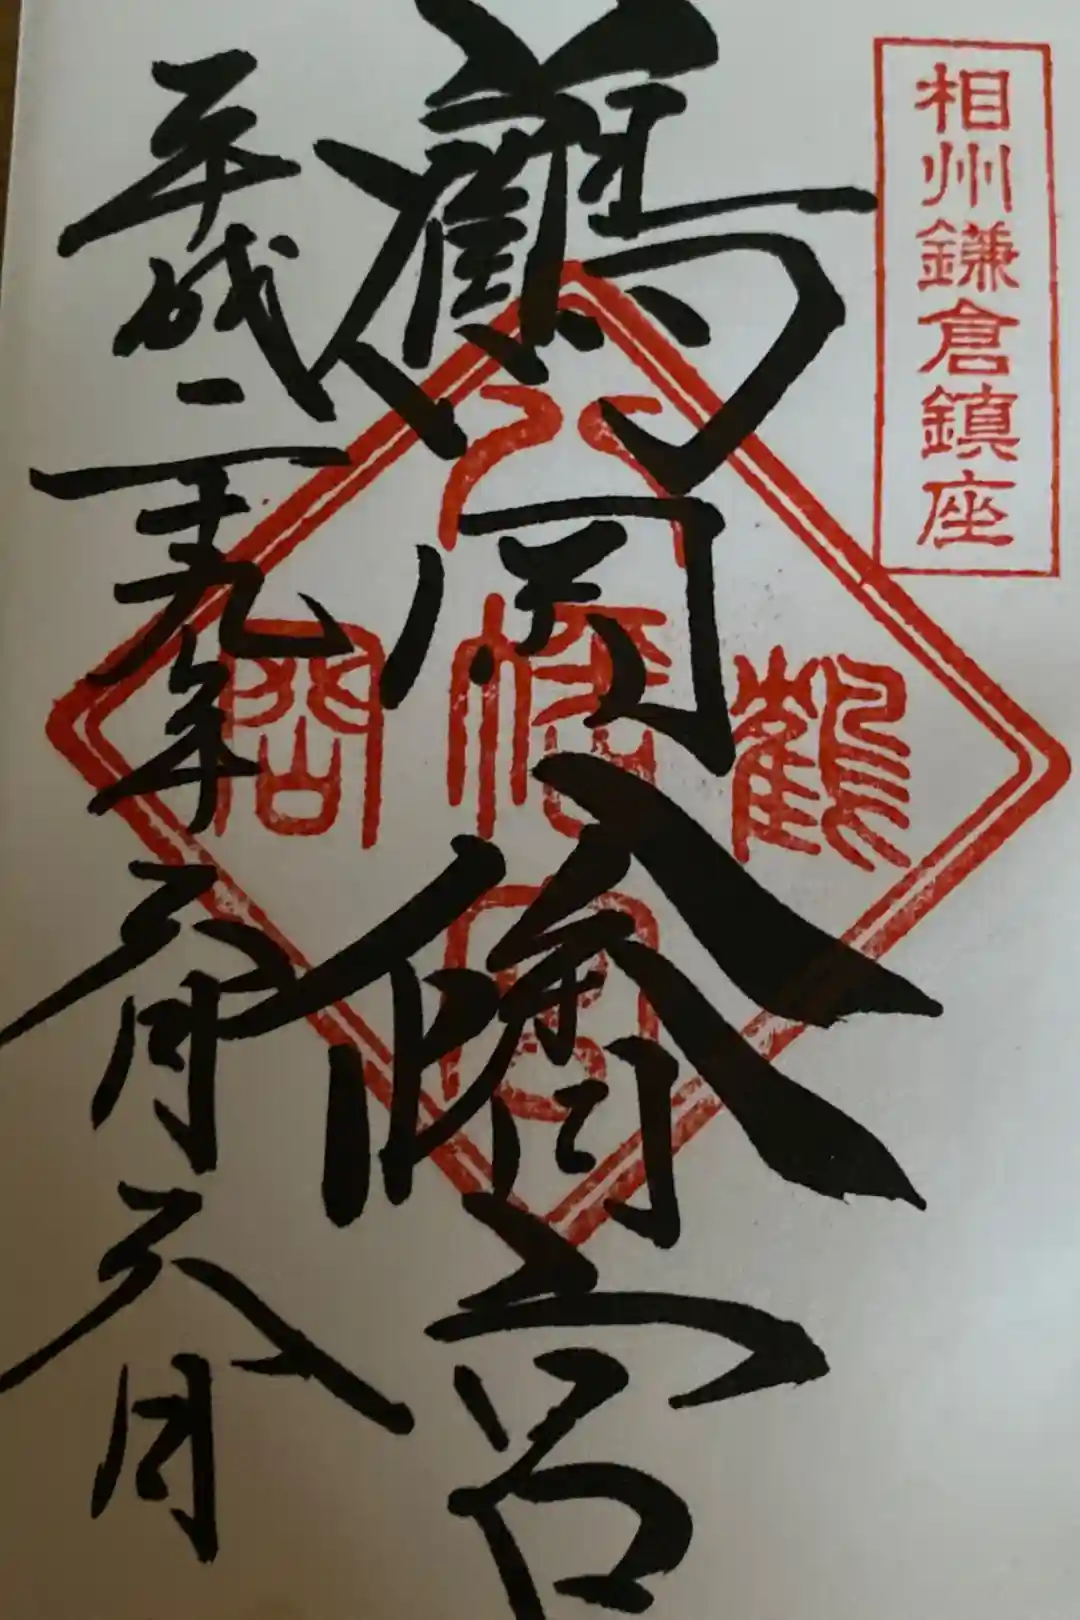 相州鎌倉鎮座
鶴岡八幡宮
鶴岡八幡宮
平成二十九年